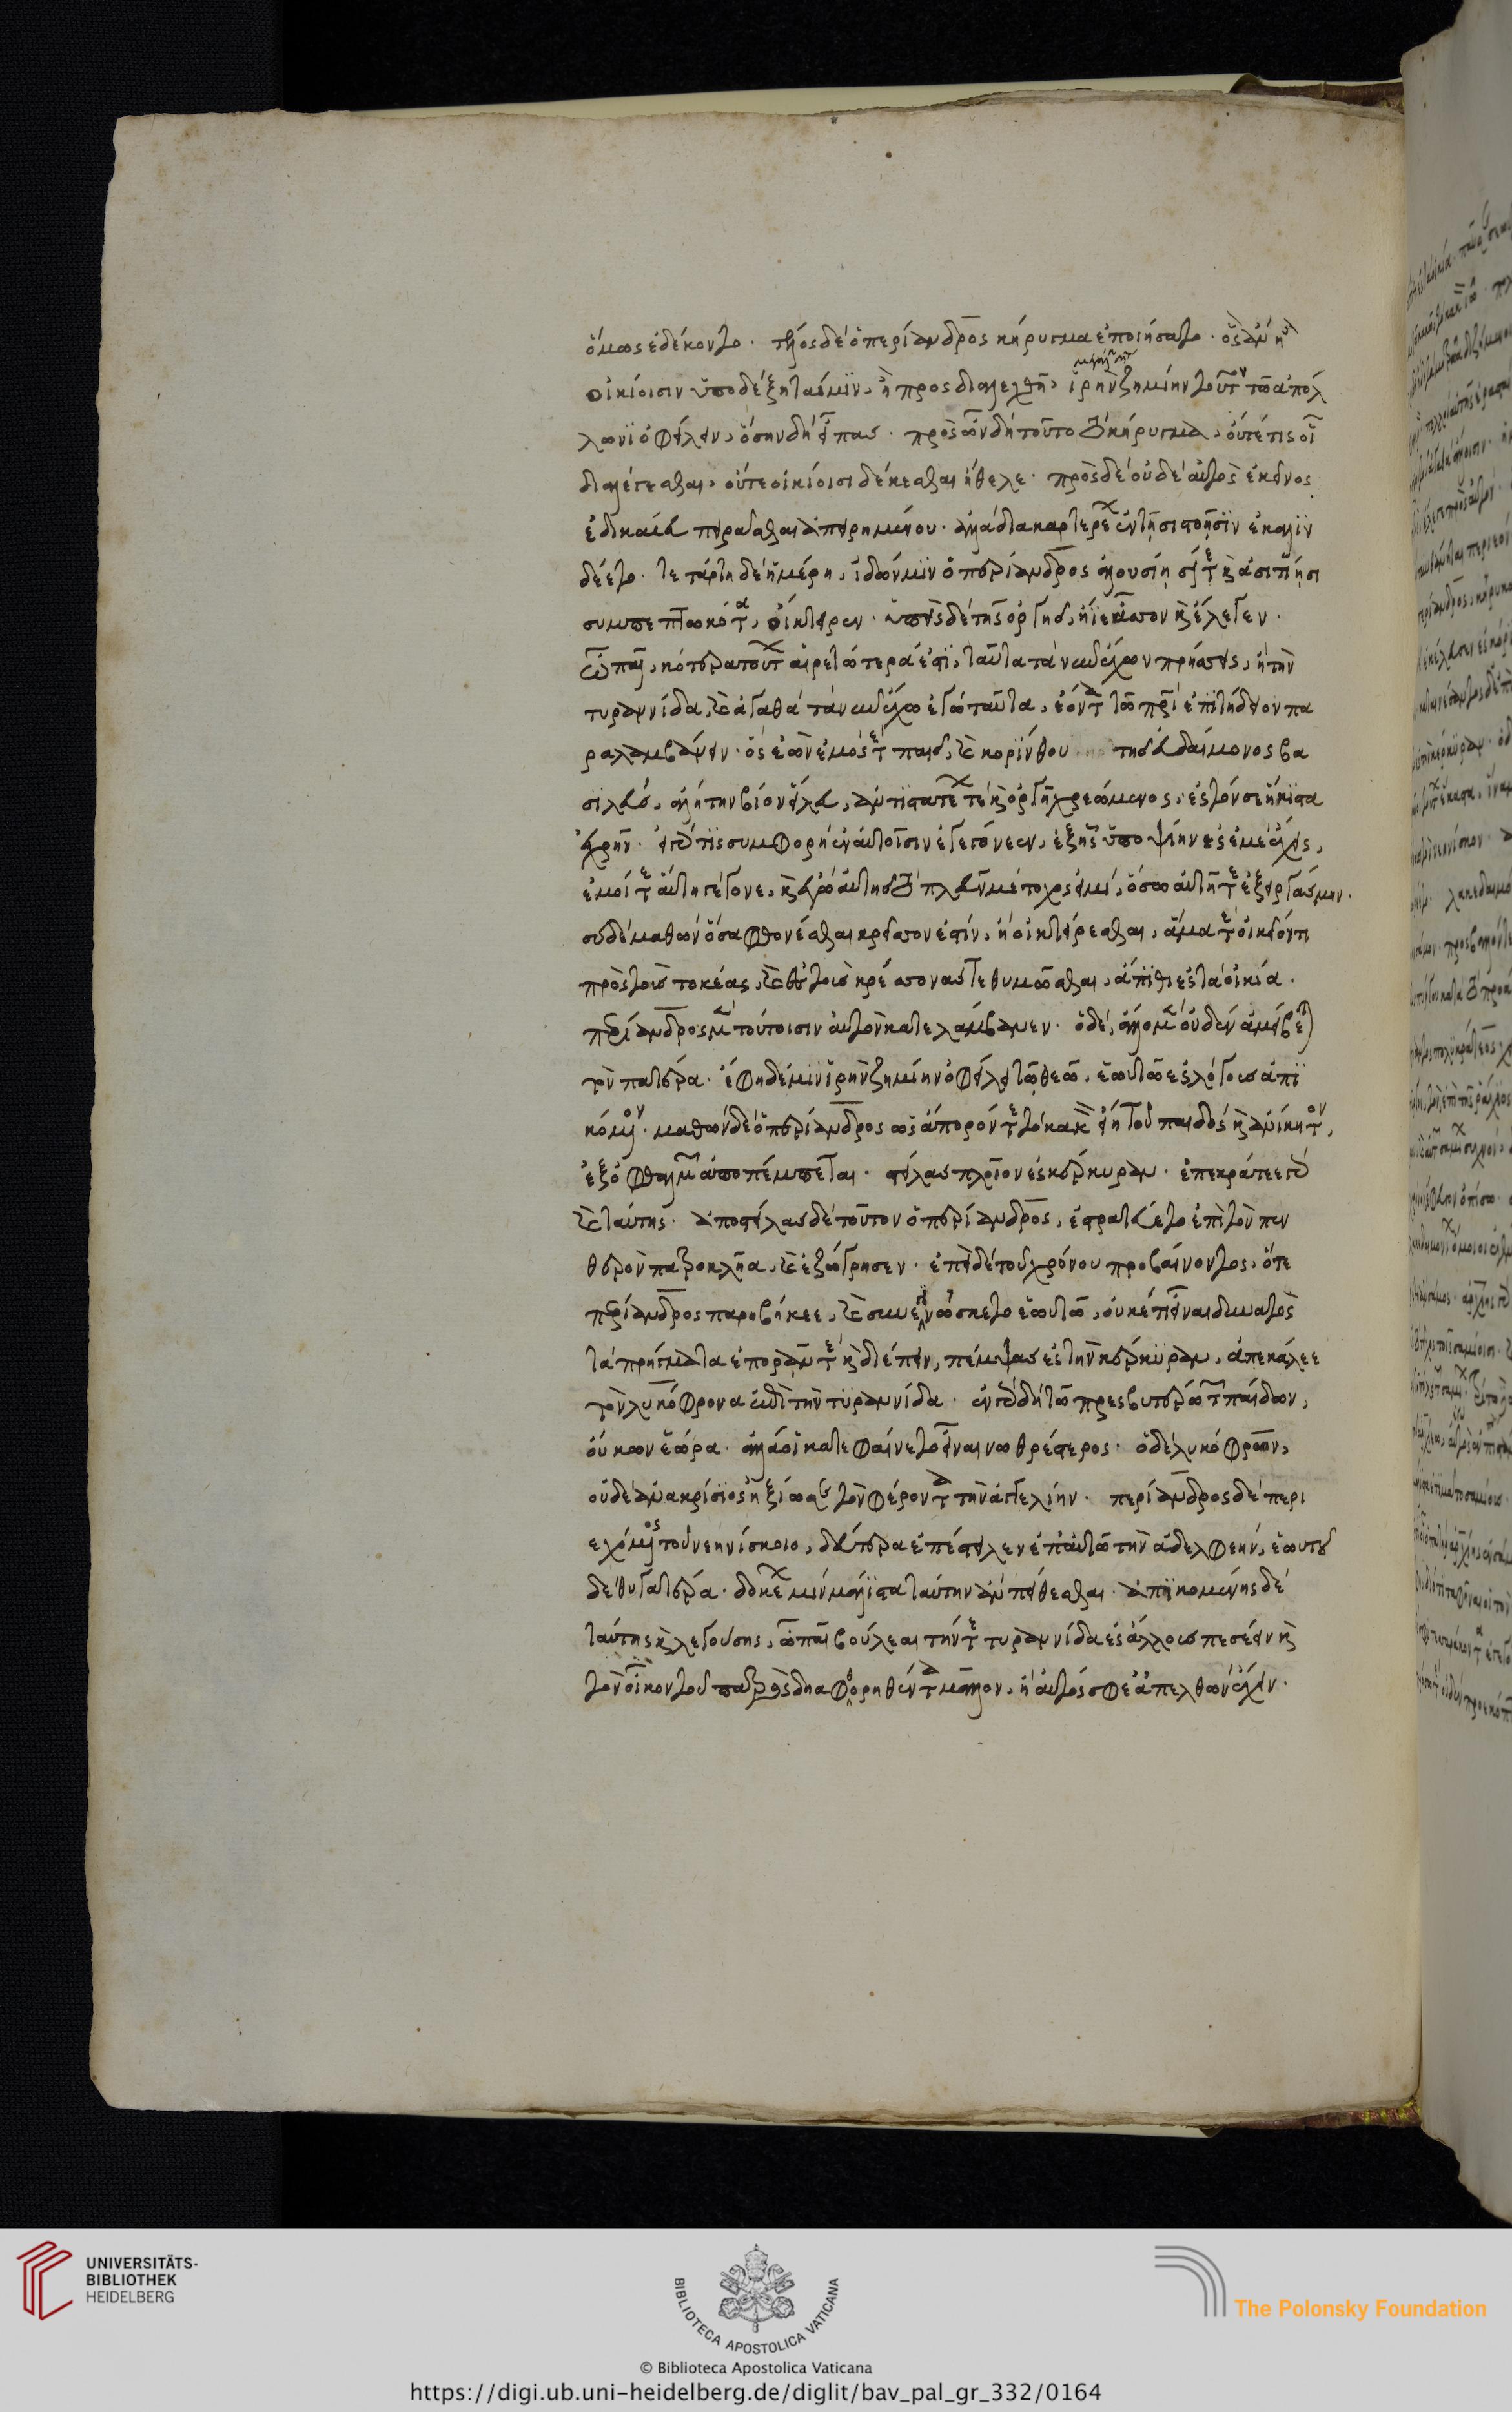 ὅμως ἐδέκοντο. τέλος δὲ ὁ περίανδρος κήρυγμα ἐποιήσατο. ὃς ἂν ἢ
οἰκίοισιν ὑποδέξηταί μϊν, ἢ προσδιαλεχθῆ, ἱρὴν ζημίην τοῦτον τῶ ἀπόλ
λωνϊ ὀφείλειν, ὅσην δὴ εἶπας. πρὸς ὦν δὴ τοῦτο τὸ κήρυγμα, οὔτέ τις οἷ
διαλέγεσθαι, οὔτε οἰκίοισι δέκεσθαι ἤθελε. πρὸς δὲ οὐδὲ αὐτὸς ἐκεῖνος
ἐδικαίου πειρᾶσθαι ἀπειρημένου. ἀλλὰ διακαρτερέων ἐν τῆσι στοῆσϊν ἐκαλϊν
δέετο. τετάρτη δὲ ἡμέρη, ἰδών μϊν ὁ περίανδρος ἀλουσίησί τε καὶ ἀσιτίησι
συμπεπτωκότα, οἴκτειρεν. ὑπεὶς δὲ τῆς ὀργῆς, ἤϊε ἆσσον καὶ ἔλεγεν.
ὦ παῖ, κότερα τούτων αἱρετώτερά ἐστϊ, ταῦτα τὰ νῦν ἔχων πρήσσεις, ἢ τὴν
τυραννίδα, καὶ ἀγαθὰ τὰ νῦν ἔχω ἐγὼ ταῦτα, ἐόντα τῶ πατρὶ ἐπϊτήδειον πα
ραλαμβάνειν. ὃς ἐὼν ἐμός τε παῖς, καὶ κορίνθου τῆς εὐδαίμονος βα
σϊλεύς, ἀλήτην βίον εἵλευ, ἀντϊστατέων τε καὶ ὀργῆ χρεώμενος, ἐς τόν σε ἥκϊστα
ἐχρῆν. εἰ γάρ τϊς συμφορὴ ἐν αὐτοῖσιν ἐγεγόνεεν, ἐξ ἧς ὑποψίην ἐς ἐμὲ ἔχεις,
ἐμοί τε αὕτη γέγονε, καὶ ἐγὼ αὐτῆς τὸ πλεῦν μέτοχός εἰμι, ὅσω αὐτή τε ἐξειργασάμην.
σὺ δὲ μαθὼν ὅσα φθονέεσθαι κρεῖσσόν ἐστίν, ἢ οἰκτείρεσθαι, ἅμα τε ὁκοῖόν τι
πρὸς τοὺς τοκέας, καὶ ἐς τοὺς κρέσσονας τεθυμῶσθαι, ἄπϊθι ἐς τὰ οἰκία.
περίανδρος μὲν τούτοισιν αὐτὸν κατελάμβανεν. ὁ δὲ, ἄλλο μὲν οὐδὲν ἀμείβεται
τὸν πατέρα. ἔφη δέ μϊν ἱρὴν ζημίην ὀφείλειν τῶ θεῶ, ἑωυτῶ ἐς λόγους ἀπϊ
κόμενον. μαθὼν δὲ ὁ περίανδρος ὡς ἄπορόν τε τὸ κακὸν εἴη τοῦ παιδὸς καὶ ἀνίκητον,
ἐξ ὀφθαλμῶν ἀποπέμπεται. στείλας πλοῖον ἐς κέρκυραν. ἐπεκράτεε γὰρ
καὶ ταύτης. ἀποστείλας δὲ τοῦτον ὁ περίανδρος, ἐστρατεύετο ἐπὶ τὸν πεν
θερὸν πατροκλῆα, καὶ ἐζώγρησεν. ἐπεὶ δὲ τοῦ χρόνου προβαίνοντος, ὅτε
περίανδρος παρηβήκεε, καὶ συνεγινώσκετο ἑωυτῶ, οὐκέτι εἶναι δυνατὸς
τὰ πρήγματα ἐπορᾶν τε καὶ διέπειν, πέμψας ἐς τὴν κέρκϋραν, ἀπεκάλεε
τὸν λυκόφρονα ἐπὶ τὴν τϋραννίδα. ἐν γὰρ δὴ τῶ πρεσβυτέρω τῶν παίδων,
οὔκων ἑώρα. ἀλλά οἱ κατεφαίνετο εἶναι νωθρέστερος. ὁ δὲ λυκόφρων,
οὐδὲ ἀνακρίσϊος ἠξίωσε τὸν φέροντα τὴν ἀγγελίην. περίανδρος δὲ περι
εχόμενος τοῦ νεηνίσκοιο, δεύτερα ἐπέστειλεν ἐπ' αὐτῶ τὴν ἀδελφεὴν, ἑωυτοῦ
δὲ θυγατέρα. δοκέων μὶν μάλϊστα ταύτην ἂν πείθεσθαι. ἀπϊκομένης δὲ
ταύτης καὶ λεγούσης, ὦ παῖ βούλεαι τήν τε τυραννίδα ἐς ἄλλους πεσέειν καὶ
τὸν οἶκον τοῦ πατρὸς διαφορηθέντα μᾶλλον, ἢ αὐτός σφε ἀπελθὼν ἔχειν.
UNIVERSITÄTS-
BIBLIOTHEK
HEIDELBERG
BIBLIOTECA APOSTOLICA VATICANA
The Polonsky Foundation
© Biblioteca Apostolica Vaticana
https://digi.ub.uni-heidelberg.de/diglit/bav_pal_gr_332/0164